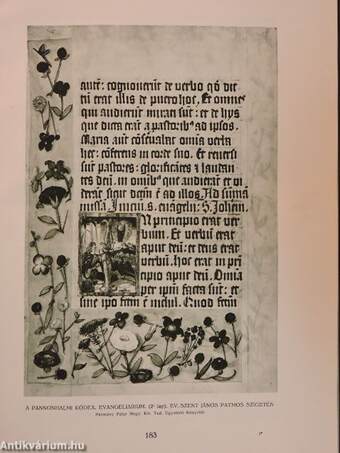 autē: cognoverūt de verbo qd dic
tū erat illis de puero hoc. Et omnes
qui audierūt mirati sūt: et de hys
que dicta erāt a pastoribs ad ipsos.
Maria aut cōservabat omīa verba
hec: cōferens in corde suo. Et reversi
sūt pastores: glorificātes et laudan
tes deū. in omibs que audierāt et vi
derāt sicut dcm ē ad illos. Ad sūmā
missā. Iniciū s. evāgelii: S. Johem.
IN principio erat ver
bum. Et verbū erat
apud deū: et deus erat
verbū. hoc erat in prī
cipio apud deū. Omīa
per ipm facta sūt: et
sine ipo factū ē nichil. Quod factū
A PANNONHALMI KÓDEX. EVANGELIARIUM. EV. SZENT JÁNOS PATMOS SZIGETÉN
Pázmány Péter
183
Antikvárium.hu